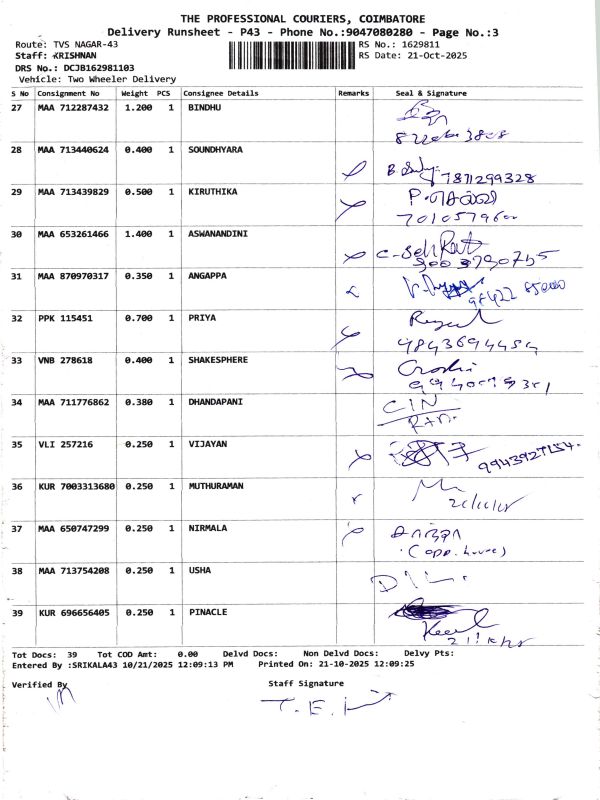 THE PROFESSIONAL COURIERS, COIMBATORE
Delivery Runsheet - P43 - Phone No.:9047080280 - Page No.:3
Route: TVS NAGAR-43 RS No.: 1629811
Staff: KRISHNAN RS Date: 21-Oct-2025
DRS No.: DCJB162981103
Vehicle: Two Wheeler Delivery
S No Consignment No Weight PCS Consignee Details Remarks Seal & Signature
27 MAA 712287432 1.200 1 BINDHU
28 MAA 713440624 0.400 1 SOUNDHYARA
7871299328
29 MAA 713439829 0.500 1 KIRUTHIKA
30 MAA 653261466 1.400 1 ASWANANDINI
31 MAA 870970317 0.350 1 ANGAPPA
32 PPK 115451 0.700 1 PRIYA
33 VNB 278618 0.400 1 SHAKESPHERE
34 MAA 711776862 0.380 1 DHANDAPANI
C/N
35 VLI 257216 0.250 1 VIJAYAN
9943927154.
36 KUR 7003313680 0.250 1 MUTHURAMAN
37 MAA 650747299 0.250 1 NIRMALA
(opp. house)
38 MAA 713754208 0.250 1 USHA
39 KUR 696656405 0.250 1 PINACLE
Tot Docs: 39 Tot COD Amt: 0.00 Delvd Docs: Non Delvd Docs: Delvy Pts:
Entered By :SRIKALA43 10/21/2025 12:09:13 PM Printed On: 21-10-2025 12:09:25
Verified By Staff Signature